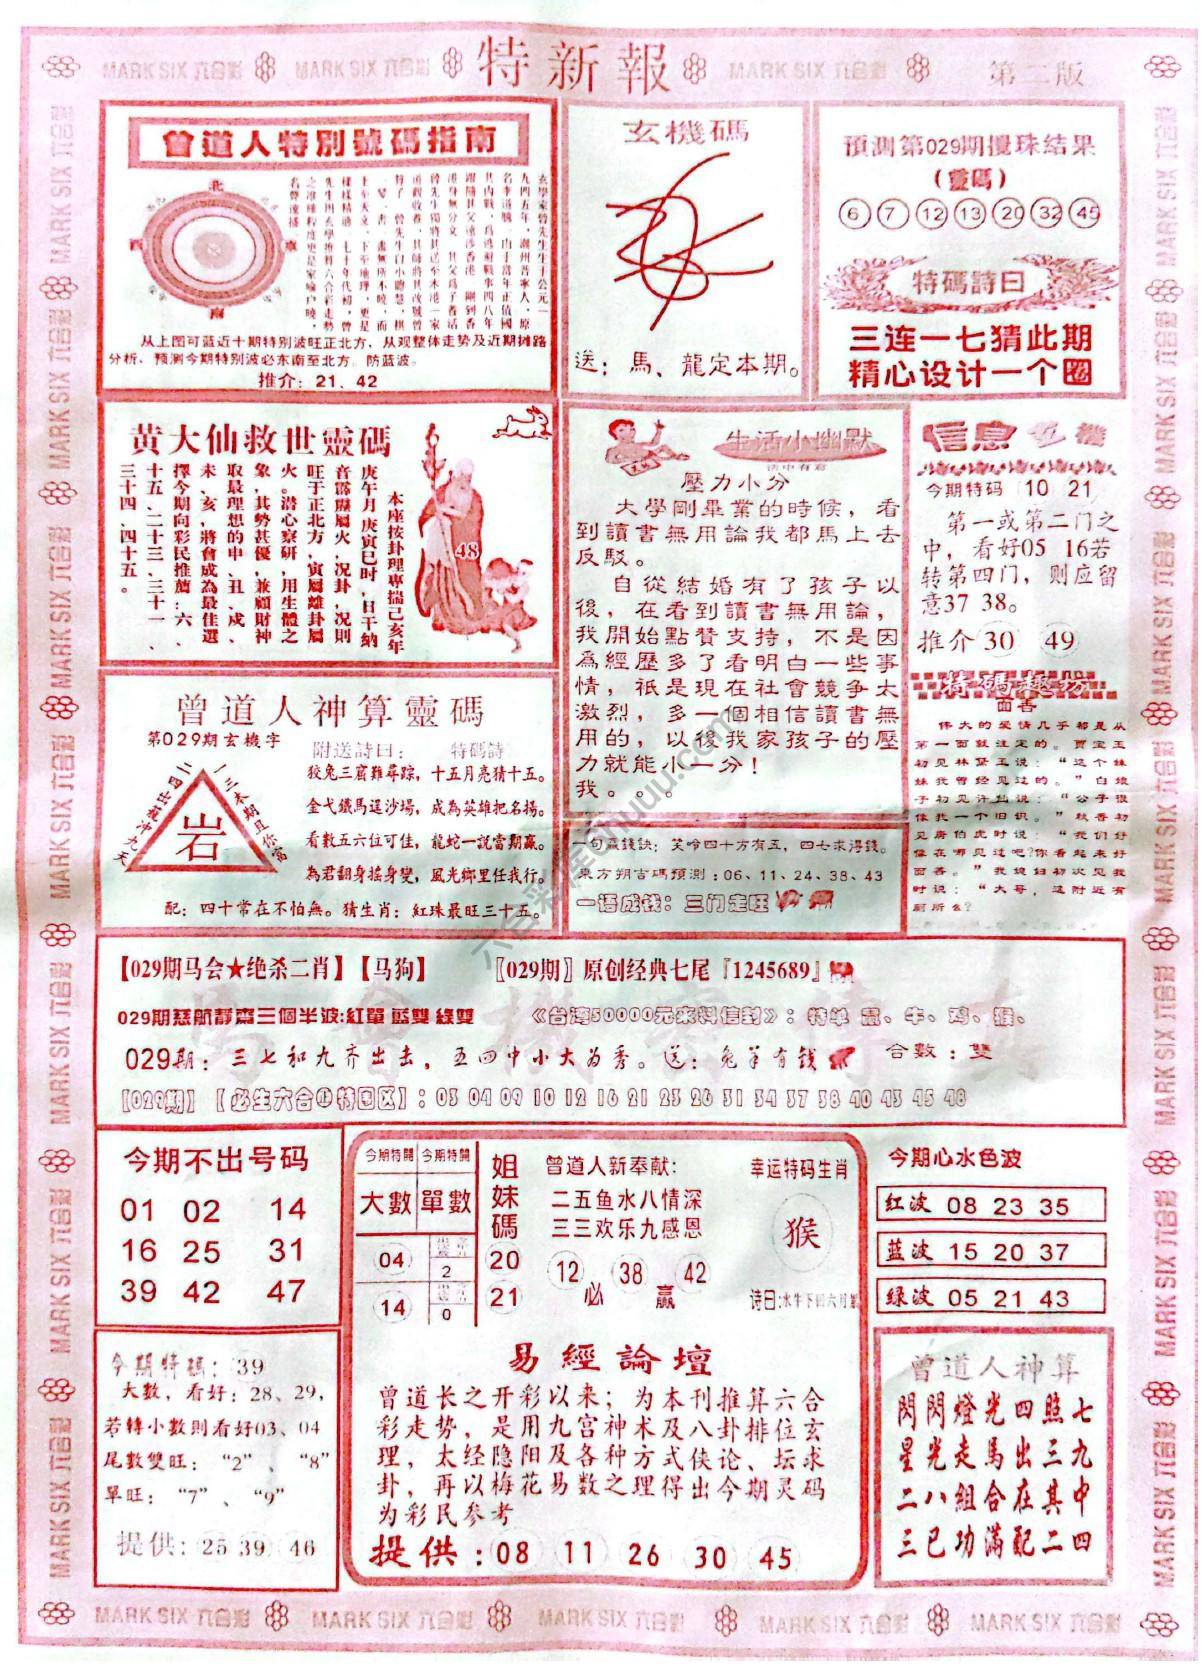 特新報
第二版
MARK SIX 六合彩
曾道人特別號碼指南
北
東
南
西
从上图可蓝近十期特别波旺正北方，从观整体走势及近期摊路
分析、预测今期特别波必东南至北方。防蓝波。
推介：21、42
玄機碼
送：馬、龍定本期。
預測第029期攪珠结果
(靈碼)
6 7 12 13 20 32 45
特碼詩曰
三连一七猜此期
精心设计一个圈
黄大仙救世靈碼
本座按卦理專揣己亥年
庚午月庚寅巳时，日干納
音霹靂屬火，况卦，况則
旺于正北方，寅屬離卦屬
火。潜心察研，用生體之
象，其勢甚優，兼顧財神
取最理想的申、丑、戌、
未、亥，將會成為最佳選
擇今期向彩民推薦：六、
十五、二十三、三十一、
三十四、四十五。
48
生活小幽默
压力小分
大學剛畢業的時候，看
到讀書無用論我都馬上去
反駁。
自從結婚有了孩子以
後，在看到讀書無用論，
我開始點贊支持，不是因
爲經歷多了看明白一些事
情，祇是現在社會競争太
激烈，多一個相信讀書無
用的，以後我家孩子的壓
力就能小一分！
我。。。
信息玄機
今期特码 10 21
第一或第二门之
中，看好05 16若
转第四门，则应留
意37 38。
推介 30 49
特碼趣坊
面善
伟大的爱情几乎都是从
第一面就注定的。贾宝玉
初见林黛玉说：“这个妹
妹我曾经见过的。”白娘
子初见许仙说：“公子很
像我一个旧识。”秋香初
见唐伯虎时说：“我们好
像在哪见过吧?你看起来好
面善。”我媳妇初次见我
时说：“大哥，这附近有
厕所么?
曾道人神算靈碼
第029期玄機字
二四出襲冲九天
一三本期且你當
岩
附送詩曰： 特碼詩
狡兔三窟難尋踪，十五月亮猜十五。
金弋鐵馬逞沙場，成為英雄把名揚。
看數五六位可佳，龍蛇一説當期贏。
為君翻身摇身變，風光鄉里任我行。
配：四十常在不怕無。猜生肖：紅珠最旺三十五。
一句贏錢訣：笑唥四十方有五，四七求得钱。
東方朔吉碼預測：06、11、24、38、43
一语成钱：三门走旺
【029期马会★绝杀二肖】【马狗】
〖029期〗原创经典七尾『1245689』
029期慈航靜齋三個半波:紅單 藍雙 綠雙
《台湾50000元来料信封》：特单 鼠、牛、鸡、猴、
029期：三七和九齐出击，五四中小大为秀。送：兔羊有钱
合數：雙
【029期】【必生六合①特围区】：03 04 09 10 12 16 21 23 26 31 34 37 38 40 43 45 48
今期不出号码
01 02 14
16 25 31
39 42 47
今期特開 今期特開
大數 單數
04
2
14
0
姐妹碼
20
21
曾道人新奉献：
二五鱼水八情深
三三欢乐九感恩
12 38 42
必 赢
幸运特码生肖
猴
今期心水色波
红波 08 23 35
蓝波 15 20 37
绿波 05 21 43
今期特碼：39
大數，看好：28、29，
若轉小數則看好03、04
尾數雙旺：“2”、“8”
單旺：“7”、“9”
提供：25 39 46
易經論壇
曾道长之开彩以来；为本刊推算六合
彩走势，是用九宫神术及八卦排位玄
理，太经隐阳及各种方式侠论、坛求
卦，再以梅花易数之理得出今期灵码
为彩民参考
提供：08 11 26 30 45
曾道人神算
閃閃燈光四照七
星光走馬出三九
二八組合在其中
三已功滿配二四